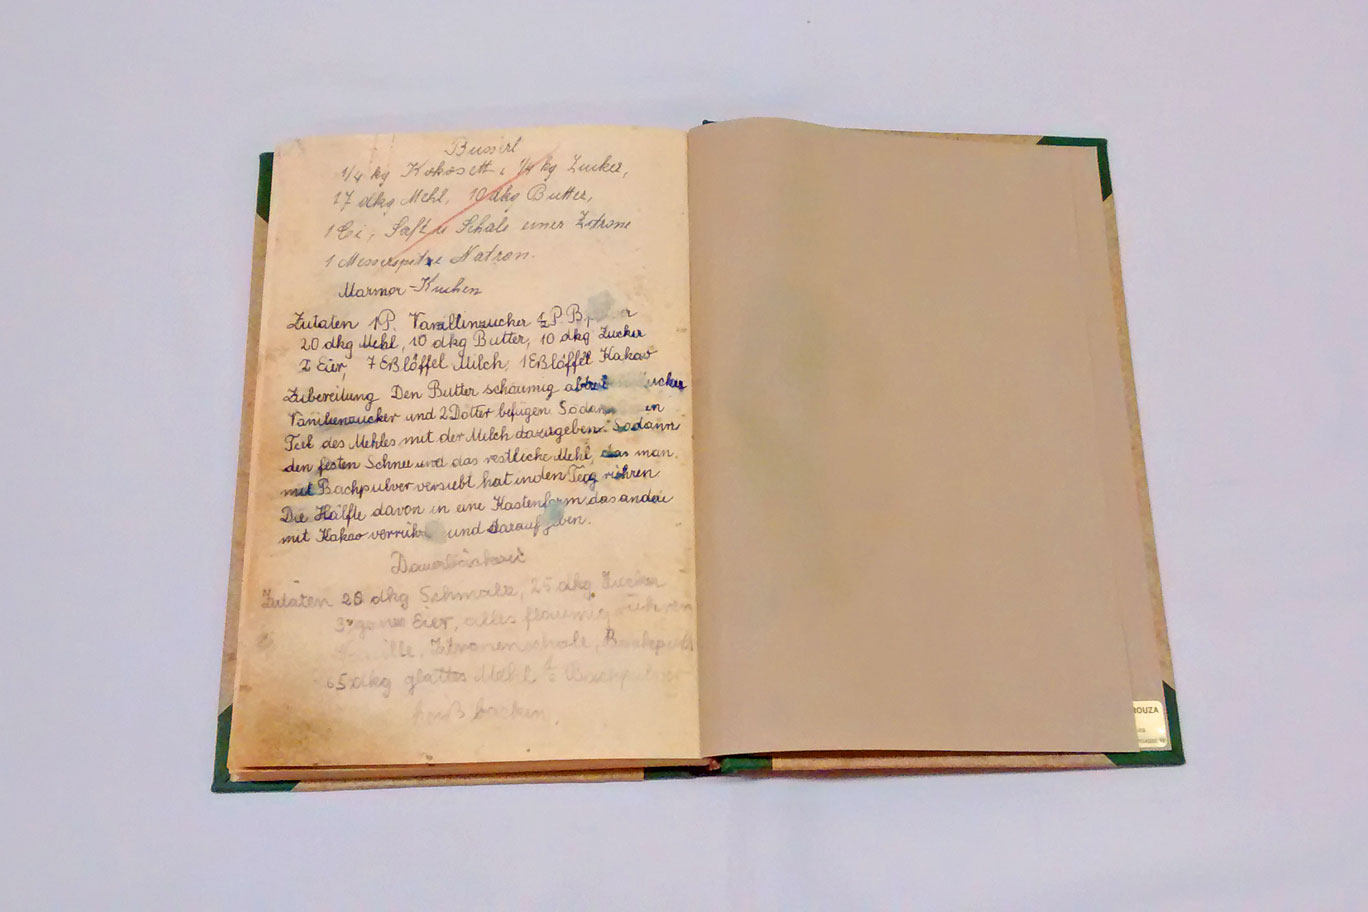 Busserl
1/4 kg Kokosett, 1/4 kg Zucker,
17 dkg Mehl, 10 dkg Butter,
1 Ei, Saft u Schale einer Zitrone
1 Messerspitze Natron.
Marmor-Kuchen
Zutaten 1P. Vanillinzucker ½ P. B.
20 dkg Mehl, 10 dkg Butter, 10 dkg Zucker
2 Eier, 7 Eßlöffel Milch, 1 Eßlöffel Kakao
Zubereitung Den Butter schaumig Zucker
Vanilienzucker und 2 Dotter befügen Sodann
Teil des Mehles mit der Milch dazugeben. Sodann
den festen Schnee und das restliche Mehl, das man
mit Bachpulver versiebt hat in den Teig rühren
Die Hälfte davon in eine Kastenform das andere
mit Kakao und darauf geben.
Zutaten 28 dkg Schmalz, 25 dkg Zucker
3 ganze Eier, alles flaumig rühren
Zitronenschale,
65 dkg glattes Mehl ½ Bachpulver
heiß backen.
ROUZA